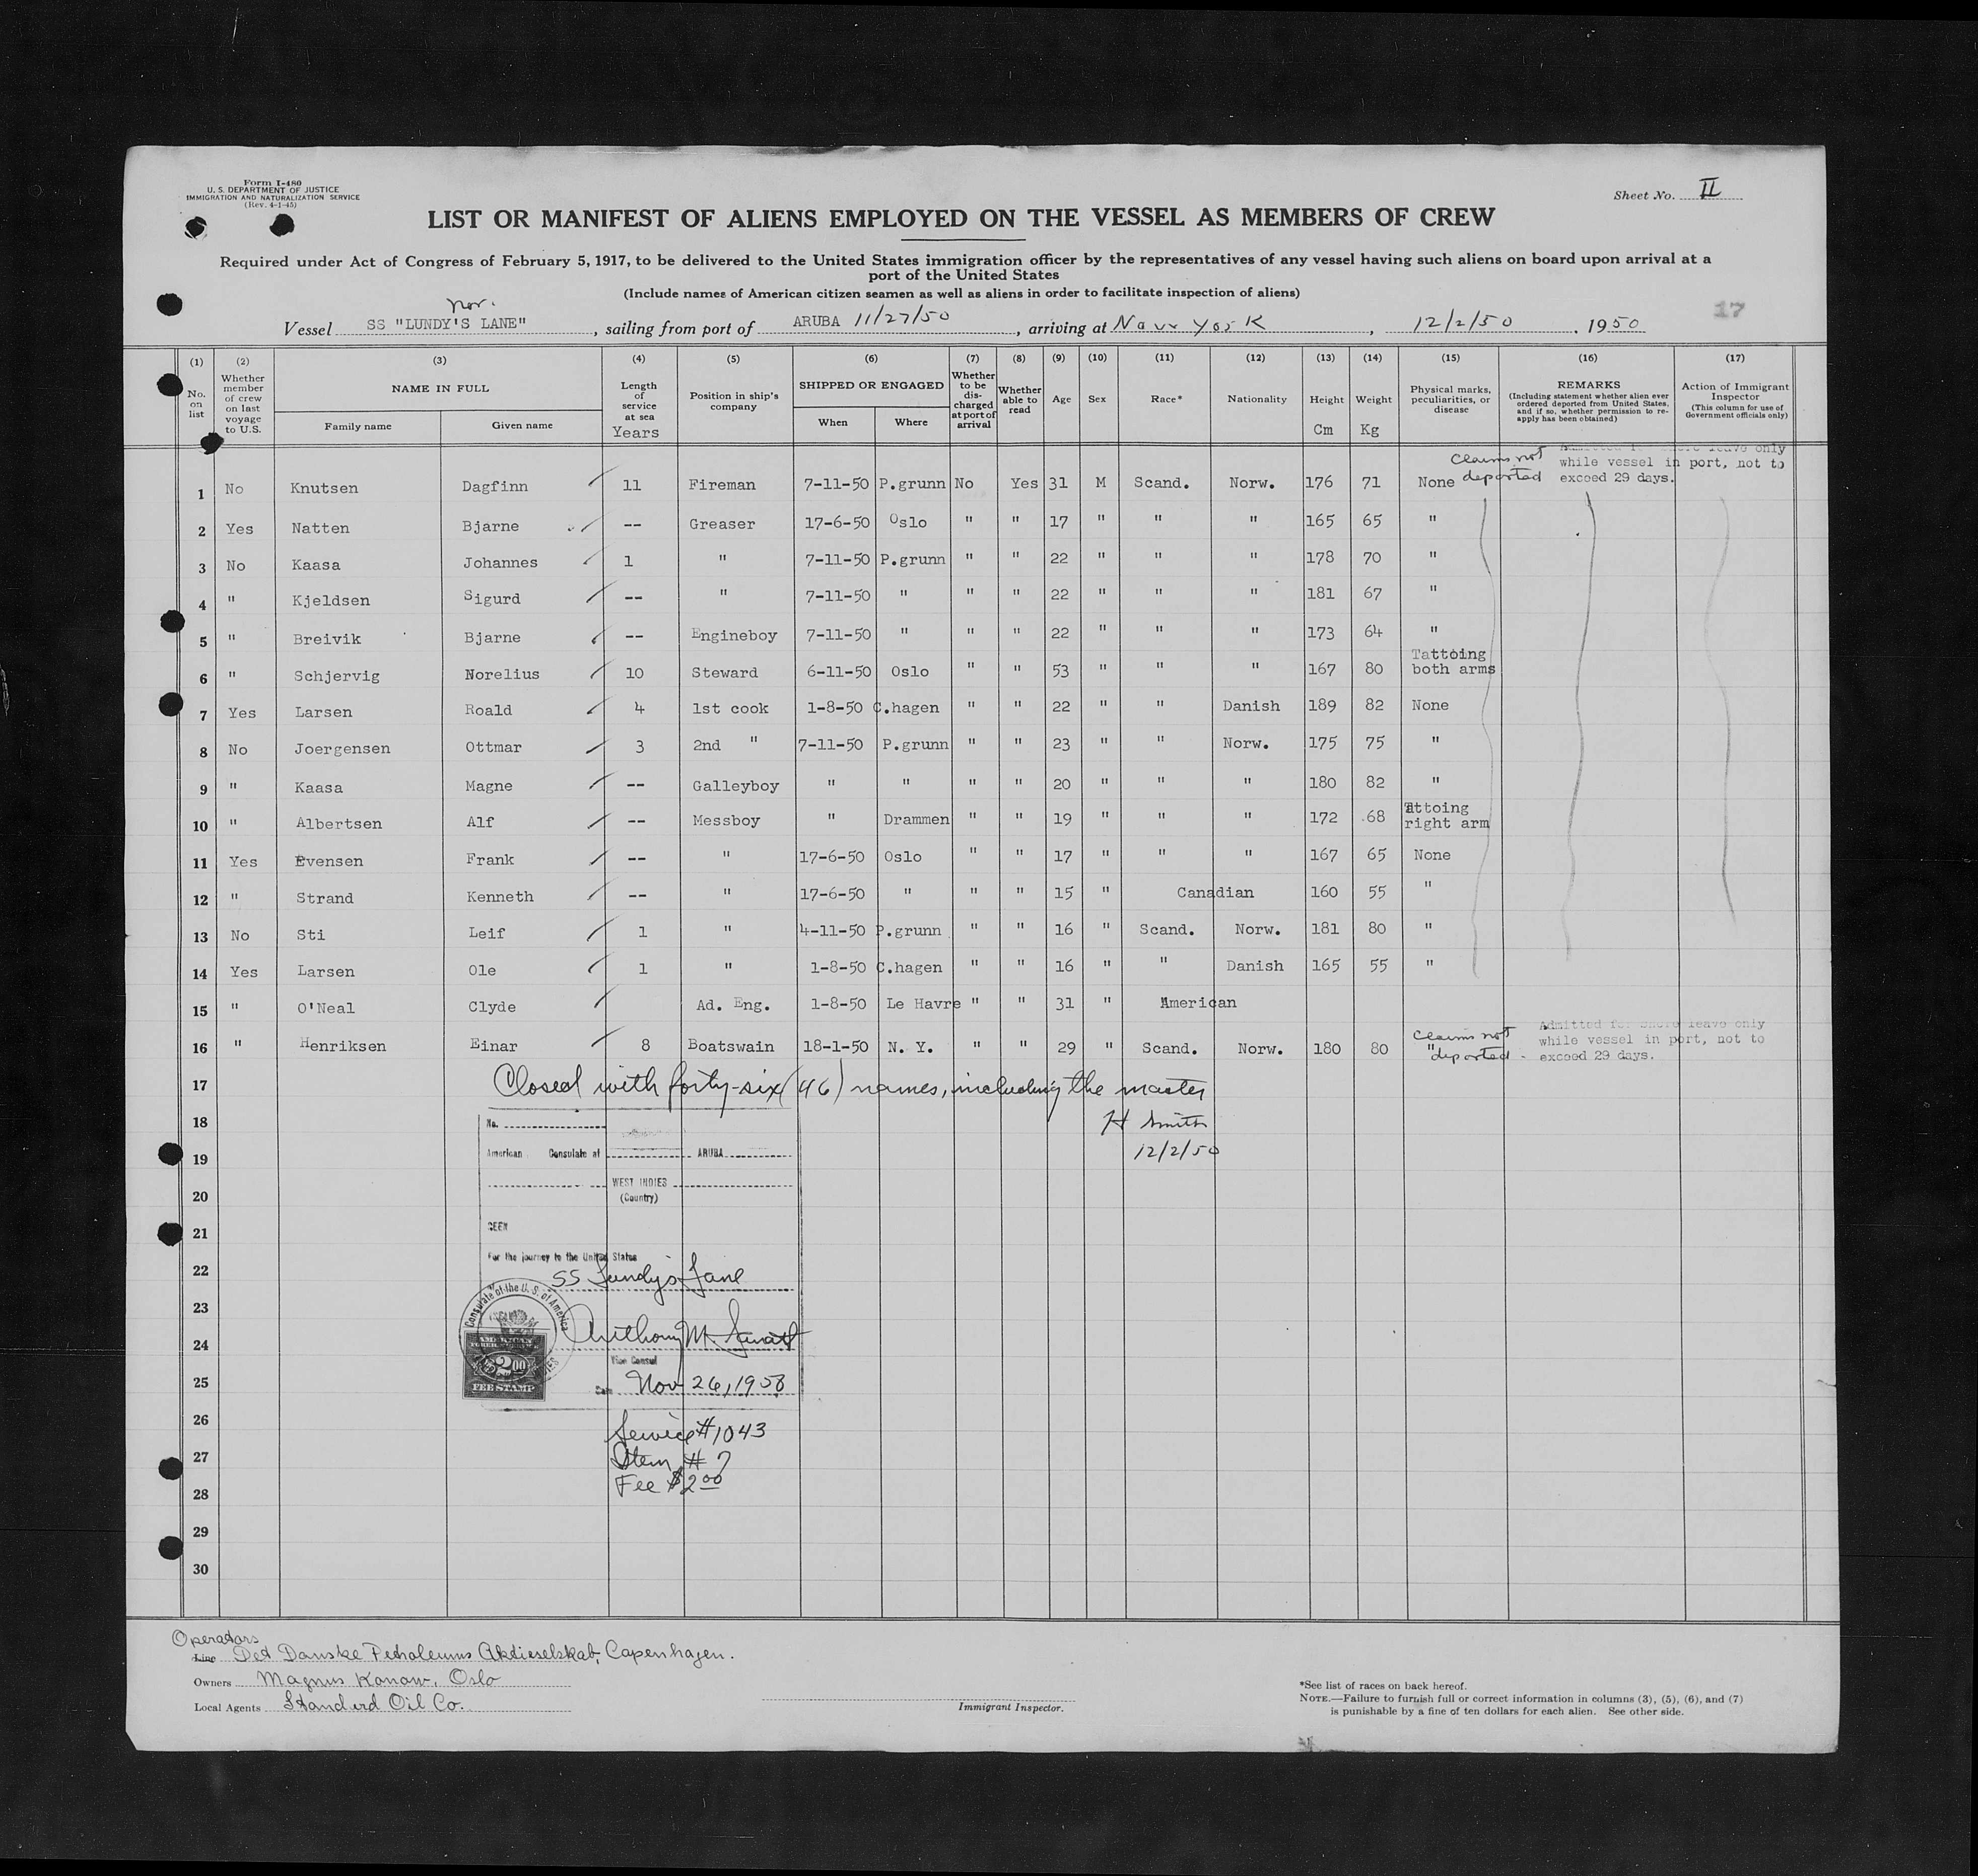 Form I-480
U. S. DEPARTMENT OF JUSTICE
IMMIGRATION AND NATURALIZATION SERVICE
(Rev. 4-1-45)
Sheet No. II
LIST OR MANIFEST OF ALIENS EMPLOYED ON THE VESSEL AS MEMBERS OF CREW
Required under Act of Congress of February 5, 1917, to be delivered to the United States immigration officer by the representatives of any vessel having such aliens on board upon arrival at a
port of the United States
(Include names of American citizen seamen as well as aliens in order to facilitate inspection of aliens)
Nor.
17
Vessel SS "LUNDY'S LANE", sailing from port of ARUBA 11/27/50, arriving at New York, 12/2/50, 1950
(1) (2) (3) (4) (5) (6) (7) (8) (9) (10) (11) (12) (13) (14) (15) (16) (17)
No. on list
Whether member of crew on last voyage to U.S.
NAME IN FULL
Family name Given name
Length of service at sea
Years
Position in ship's company
SHIPPED OR ENGAGED
When Where
Whether to be discharged at port of arrival
Whether able to read
Age
Sex
Race*
Nationality
Height
Cm
Weight
Kg
Physical marks, peculiarities, or disease
REMARKS
(Including statement whether alien ever ordered deported from United States, and if so, whether permission to re-apply has been obtained)
Action of Immigrant Inspector
(This column for use of Government officials only)
Claims not deported
Admitted for shore leave only
while vessel in port, not to
exceed 29 days.
1 No Knutsen Dagfinn 11 Fireman 7-11-50 P.grunn No Yes 31 M Scand. Norw. 176 71 None
2 Yes Natten Bjarne -- Greaser 17-6-50 Oslo " " 17 " " " 165 65 "
3 No Kaasa Johannes 1 " 7-11-50 P.grunn " " 22 " " " 178 70 "
4 " Kjeldsen Sigurd -- " 7-11-50 " " " 22 " " " 181 67 "
5 " Breivik Bjarne -- Engineboy 7-11-50 " " " 22 " " " 173 64 "
6 " Schjervig Norelius 10 Steward 6-11-50 Oslo " " 53 " " " 167 80 Tattoing both arms
7 Yes Larsen Roald 4 1st cook 1-8-50 C.hagen " " 22 " " Danish 189 82 None
8 No Joergensen Ottmar 3 2nd " 7-11-50 P.grunn " " 23 " " Norw. 175 75 "
9 " Kaasa Magne -- Galleyboy " " " " 20 " " " 180 82 "
10 " Albertsen Alf -- Messboy " Drammen " " 19 " " " 172 68 Tattoing right arm
11 Yes Evensen Frank -- " 17-6-50 Oslo " " 17 " " " 167 65 None
12 " Strand Kenneth -- " 17-6-50 " " " 15 " Canadian 160 55 "
13 No Sti Leif 1 " 4-11-50 P.grunn " " 16 " Scand. Norw. 181 80 "
14 Yes Larsen Ole 1 " 1-8-50 C.hagen " " 16 " " Danish 165 55 "
15 " O'Neal Clyde Ad. Eng. 1-8-50 Le Havre " " 31 " American
16 " Henriksen Einar 8 Boatswain 18-1-50 N. Y. " " 29 " Scand. Norw. 180 80 "
Claims not deported
Admitted for shore leave only
while vessel in port, not to
exceed 29 days.
17 Closed with forty-six (46) names, including the master
18 H Smith
19 12/2/50
20
21
22
23
24
25
26
27
28
29
30
No.
American Consulate at ARUBA
WEST INDIES
(Country)
SEEN
For the journey to the United States
SS Lundy's Lane
Anthony M
Vice Consul
Date Nov 26, 1950
Consulate of the U. S. of America
AMERICAN
2 00
FEE STAMP
Service #1043
Item # 7
Fee $2.00
Operators
Line Det Danske Petroleums Aktieselskab, Copenhagen.
Owners Magnus Konow, Oslo
Local Agents Standard Oil Co.
Immigrant Inspector.
*See list of races on back hereof.
NOTE.—Failure to furnish full or correct information in columns (3), (5), (6), and (7)
is punishable by a fine of ten dollars for each alien. See other side.